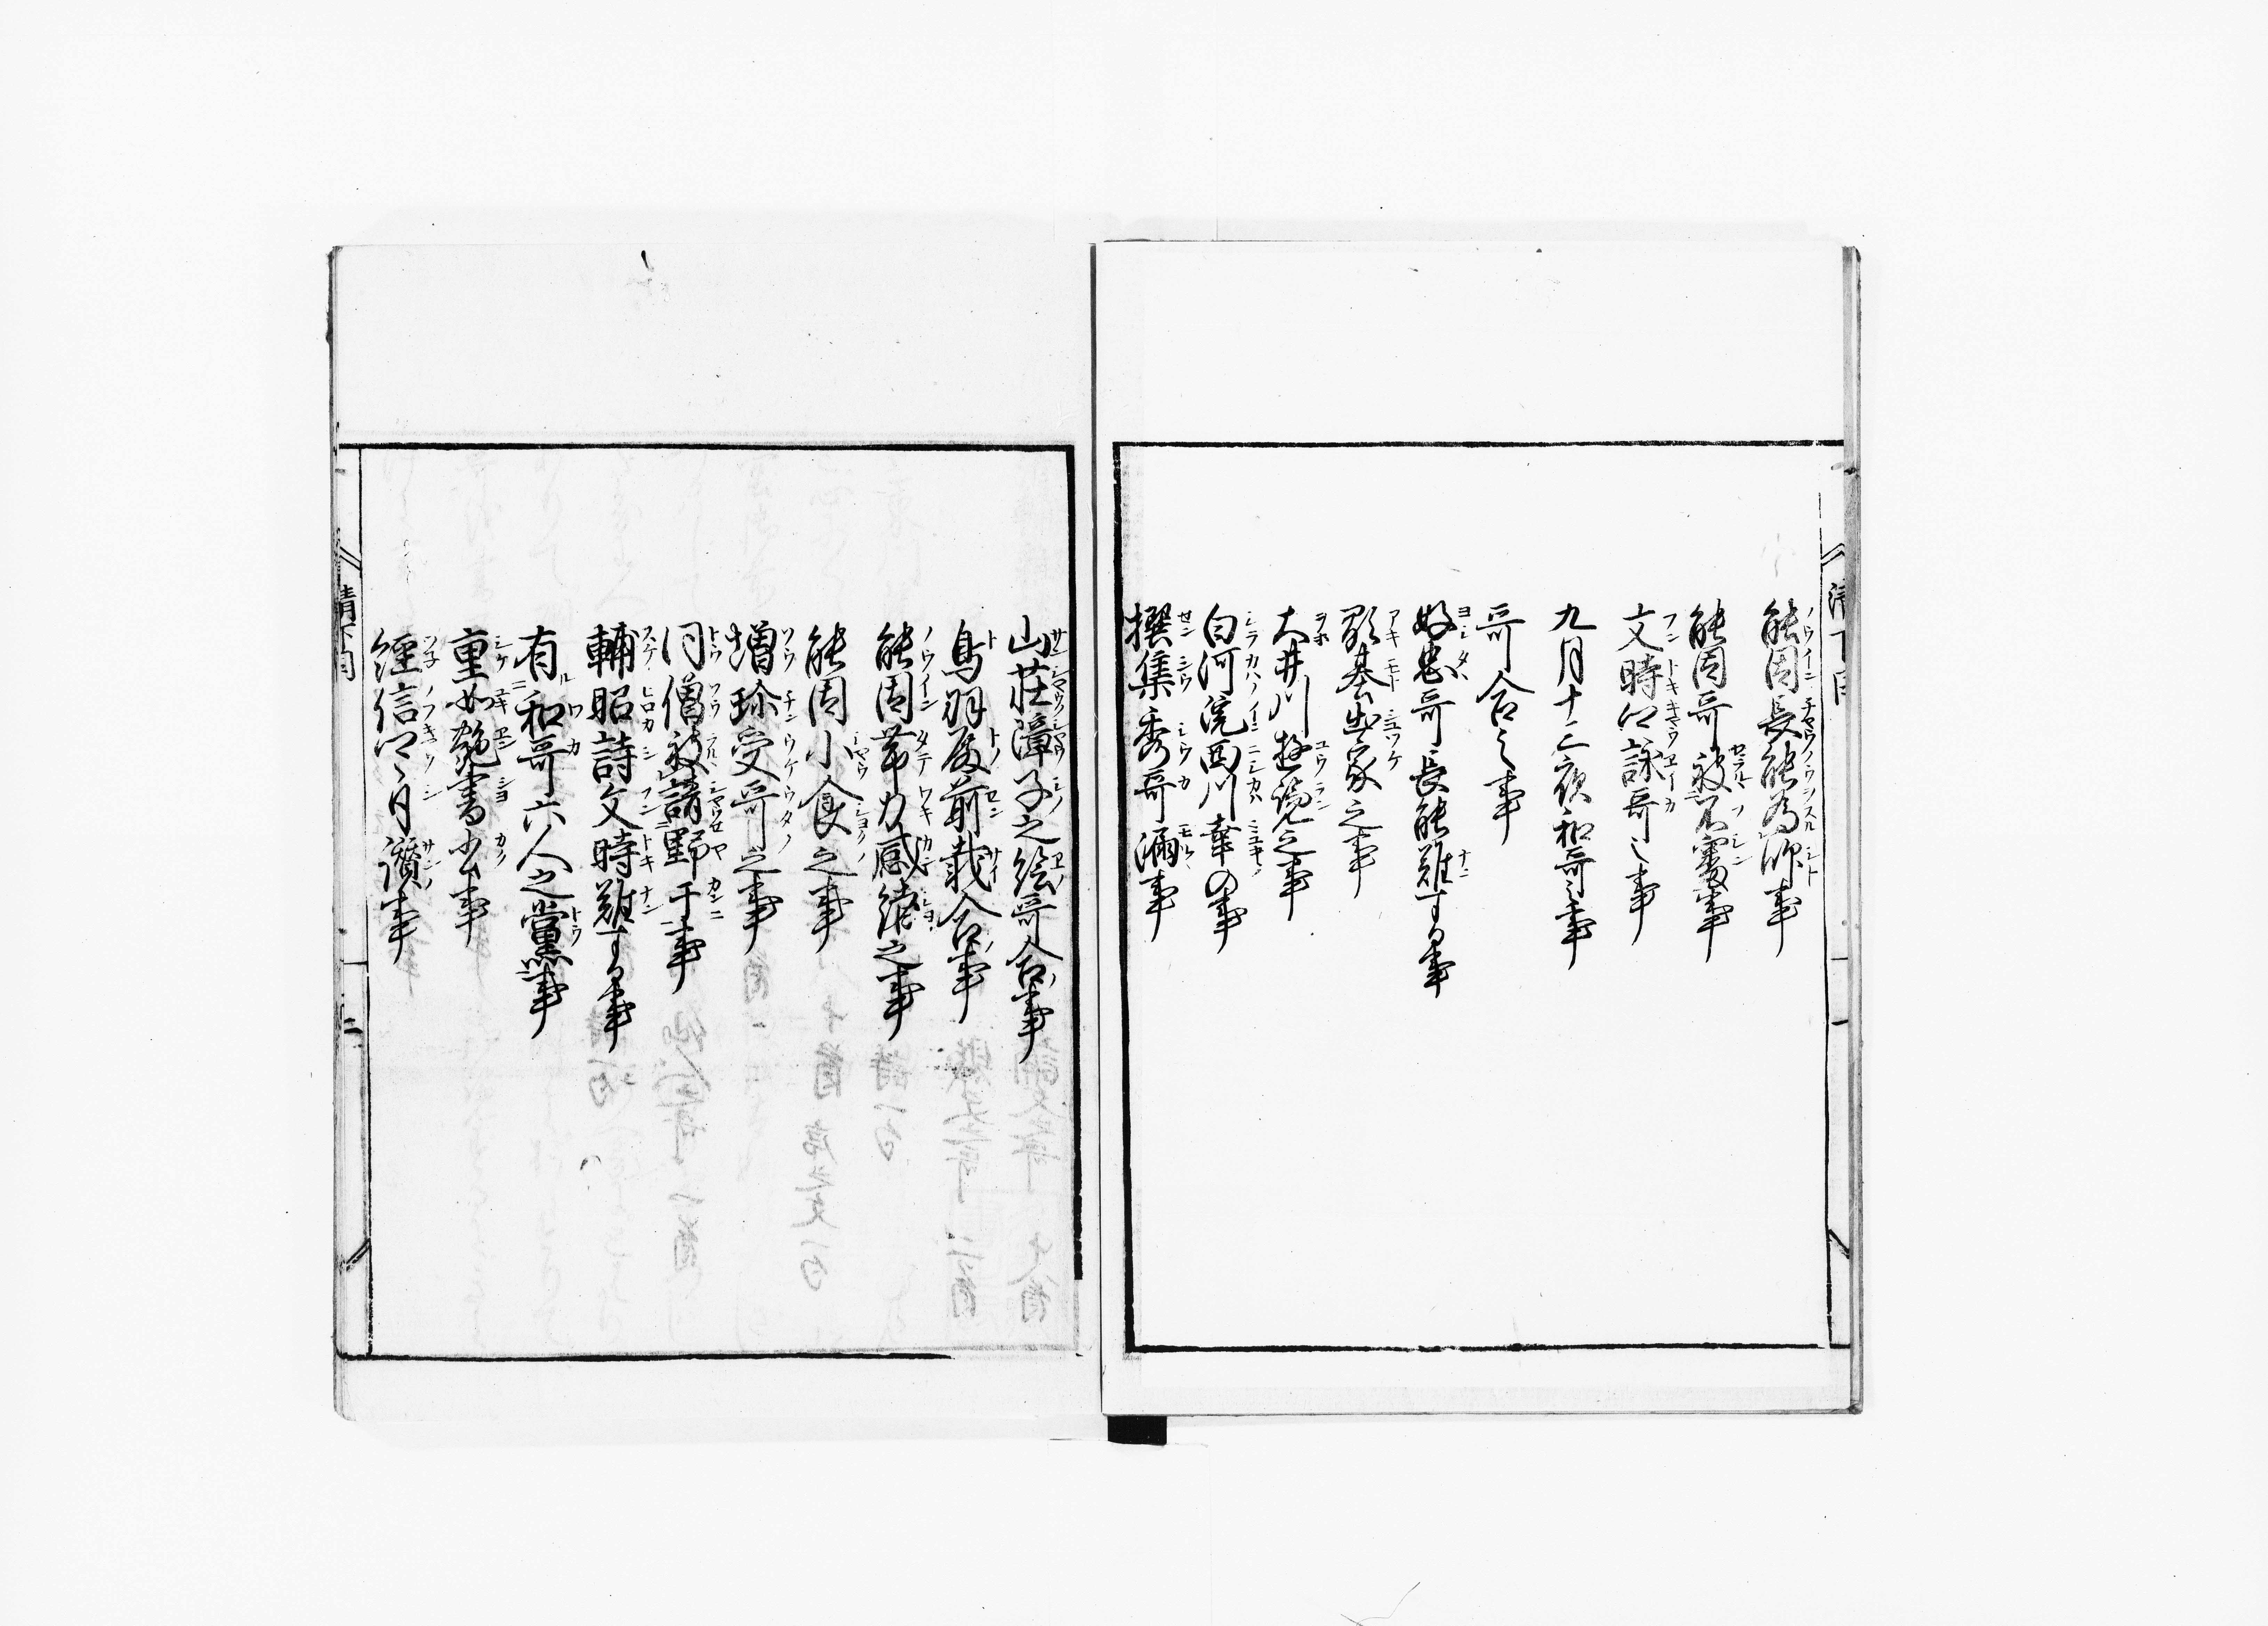 能因長能為師事
能因哥被不審事
文時卿詠哥之事
九月十三夜和哥之事
哥合之事
好忠哥長能難する事
顕基出家之事
大井川遊覧之事
白河院西川幸の事
撰集秀哥漏事
山荘障子之絵哥合事
鳥羽殿前栽合事
能因帯刀感緒之事
能因小食之事
増珍受哥之事
同僧被請野干事
輔昭詩文時難する事
有和哥六人之黨事
重如艶書哥事
經信卿月讃事